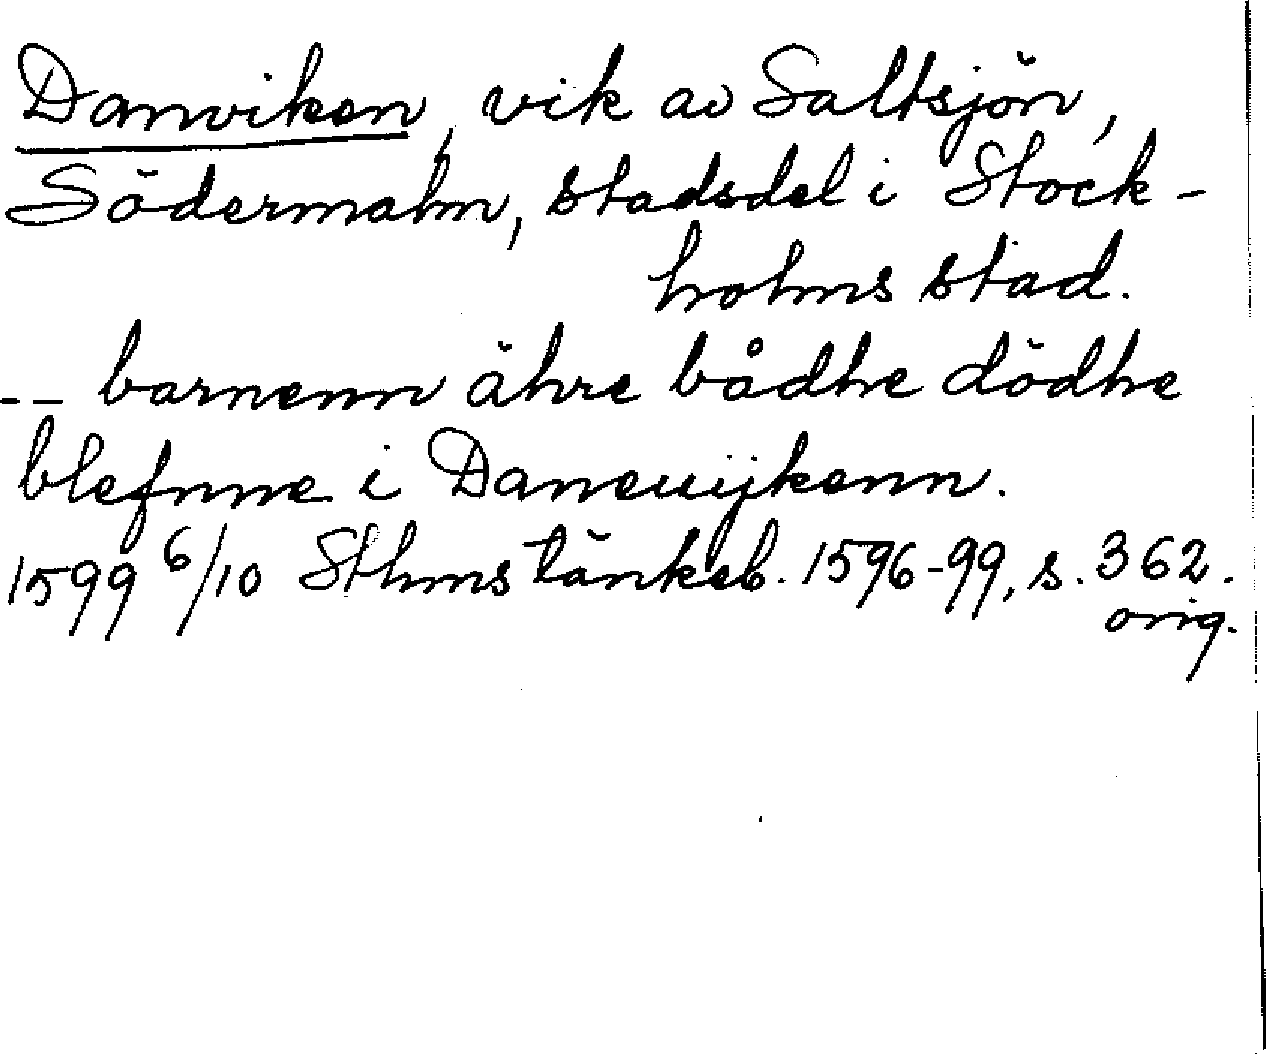 Danviken, vik av Saltsjön,
Södermalm, stadsdel i Stock-
holms stad.
-- barnenn ähre bådhe dödhe
blefnne i Daneuijkenn.
1599 6/10 Sthms tänkeb. 1596-99, s. 362.
orig.